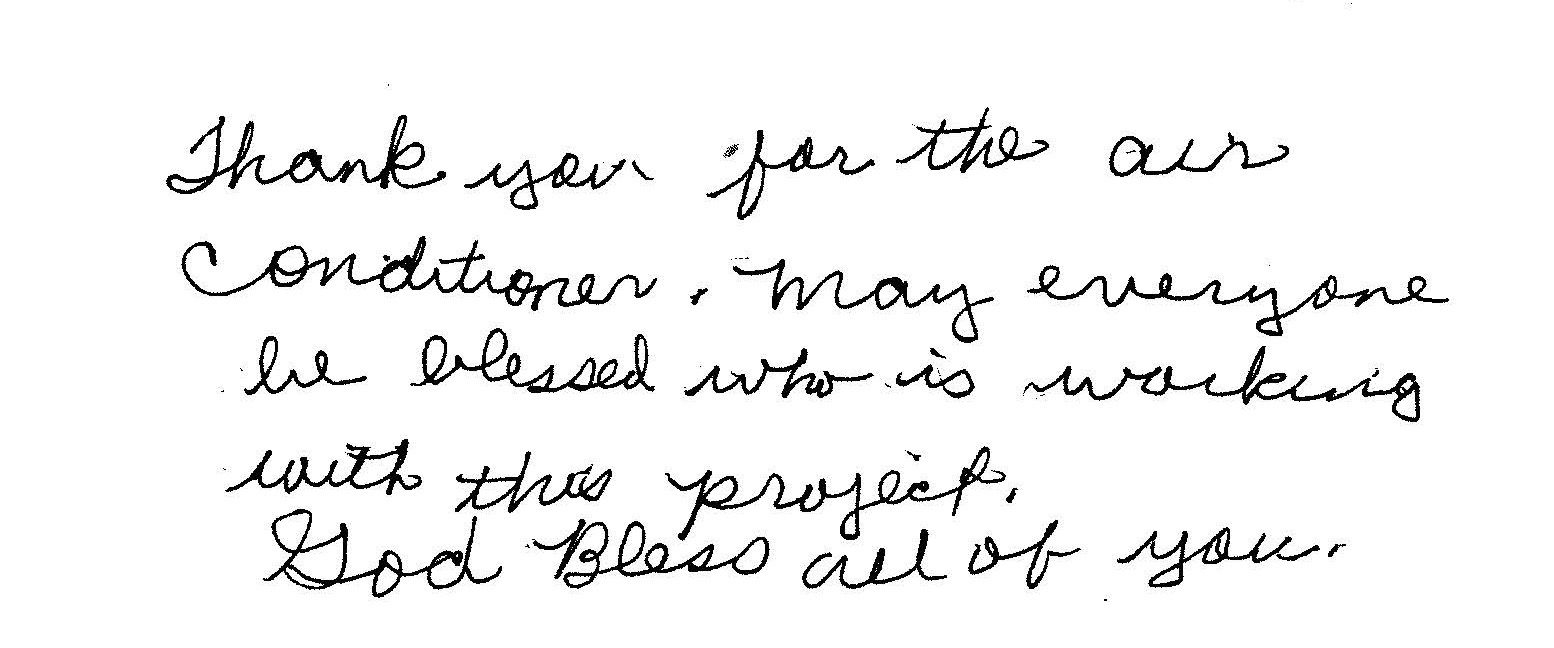 Thank you for the air
Conditioner. May everyone
be blessed who is working
with this project.
God Bless all of you.